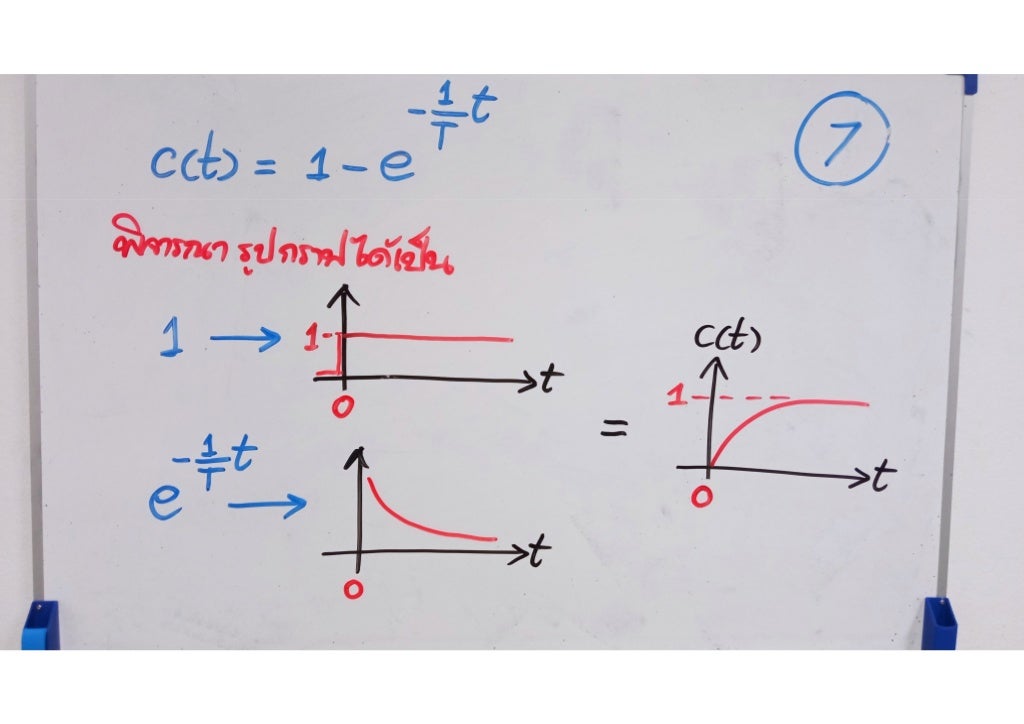 c(t) = 1 - e^{-\frac{1}{T}t}
7
พิจารณา รูปกราฟได้เป็น
1 → 1 t
0
c(t)
1
t
0
=
e^{-\frac{1}{T}t} → t
0